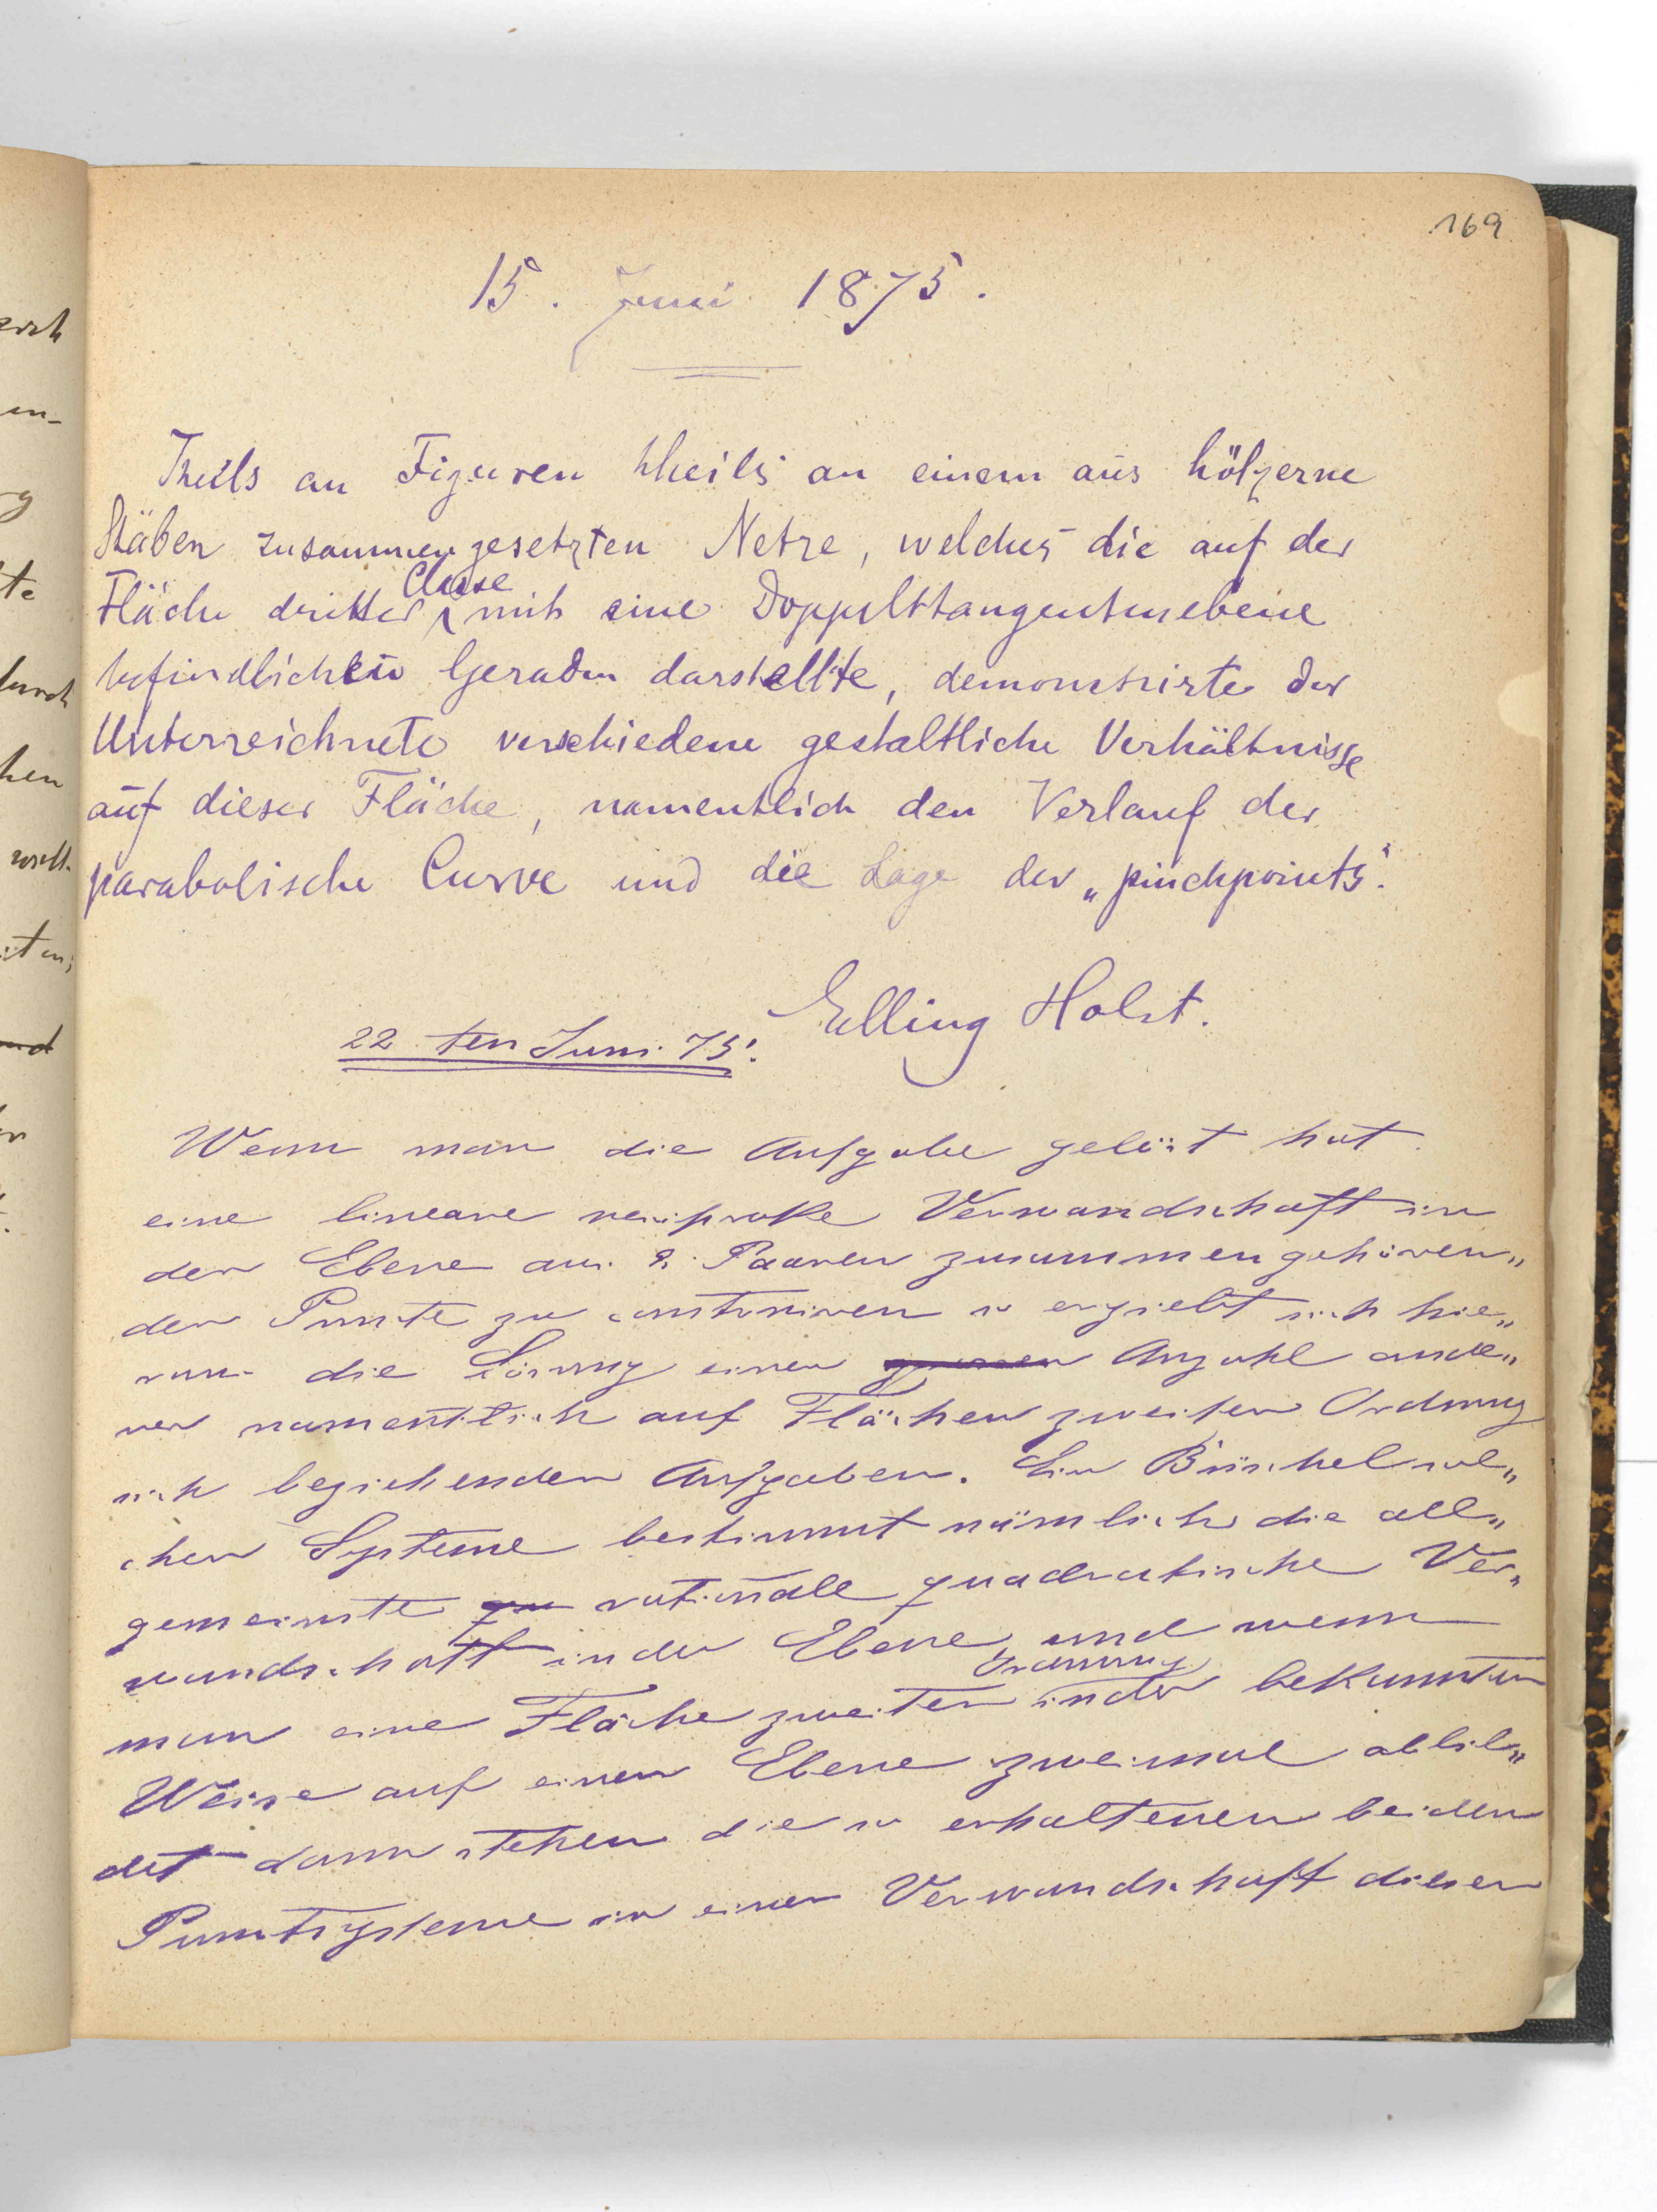 169
15. Juni 1875.
Theils an Figuren theils an einem aus hölzerne
Stäben zusammengesetzten Netze, welches die auf der
Fläche dritter Classe mit eine Doppelttangentenebene
befindlichen Geraden darstellte, demonstrirte der
Unterzeichnete verschiedene gestaltliche Verhältnisse
auf dieser Fläche, namentlich den Verlauf der
parabolische Curve und die Lage der „pinchpoints“.
Elling Holst.
22 ten Juni 75.
Wenn man die Aufgabe gelöst hat
eine lineare reciproke Verwandschaft in
der Ebene aus 8 Paaren zusammengehören„
der Puncte zu construiren so ergiebt sich hie„
raus die Lösung einer Anzahl ande„
rer namentlich auf Flächen zweiter Ordnung
sich beziehenden Aufgaben. Ein Büschel sol„
cher Systeme bestimmt nämlich die all„
gemeinste rationale quadratische Ver„
wandschaft in der Ebene, und wenn
man eine Fläche zweiter Ordnung in der bekannten
Weise auf einer Ebene zweimal abbil„
det dann stehen die so erhaltenen beiden
Punctsysteme in einer Verwandschaft dieser